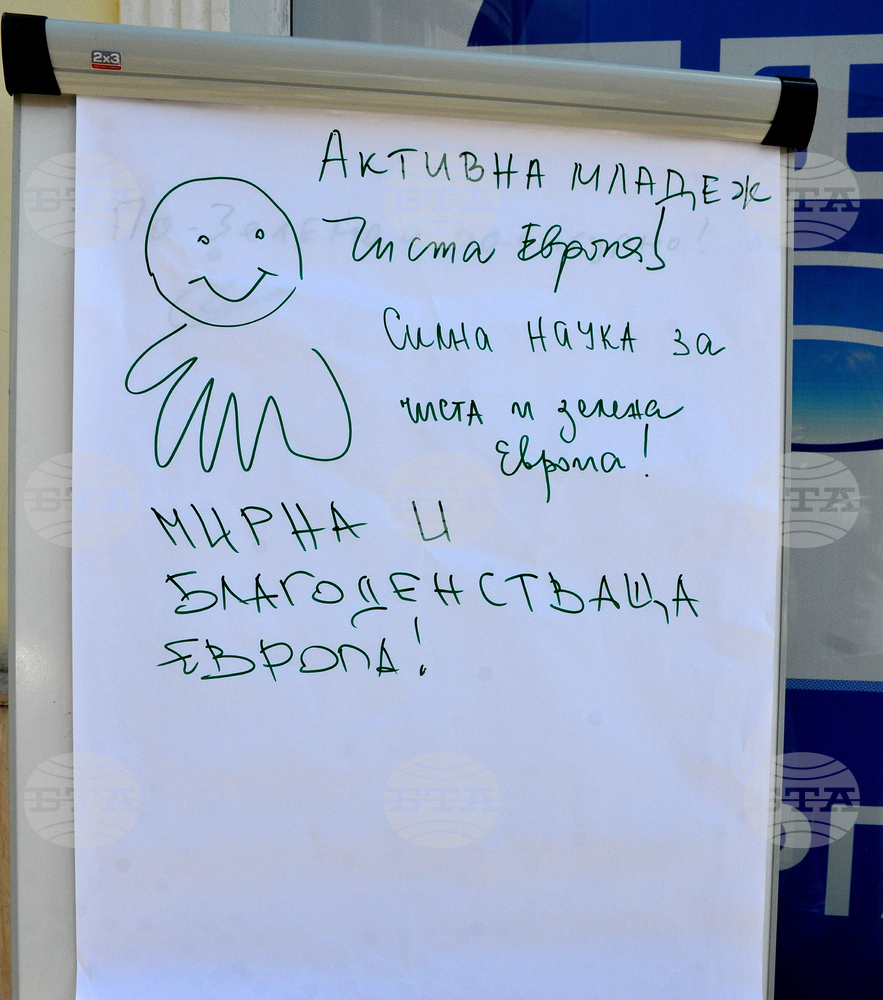 2x3
АКТИВНА МЛАДЕЖ
Чиста Европа!
Силна наука за
чиста и зелена
Европа!
МИРНА И
БЛАГОДЕНСТВАЩА
ЕВРОПА!
БТА
БТА
БТА
БТА
БТА
БТА
БТА
БТА